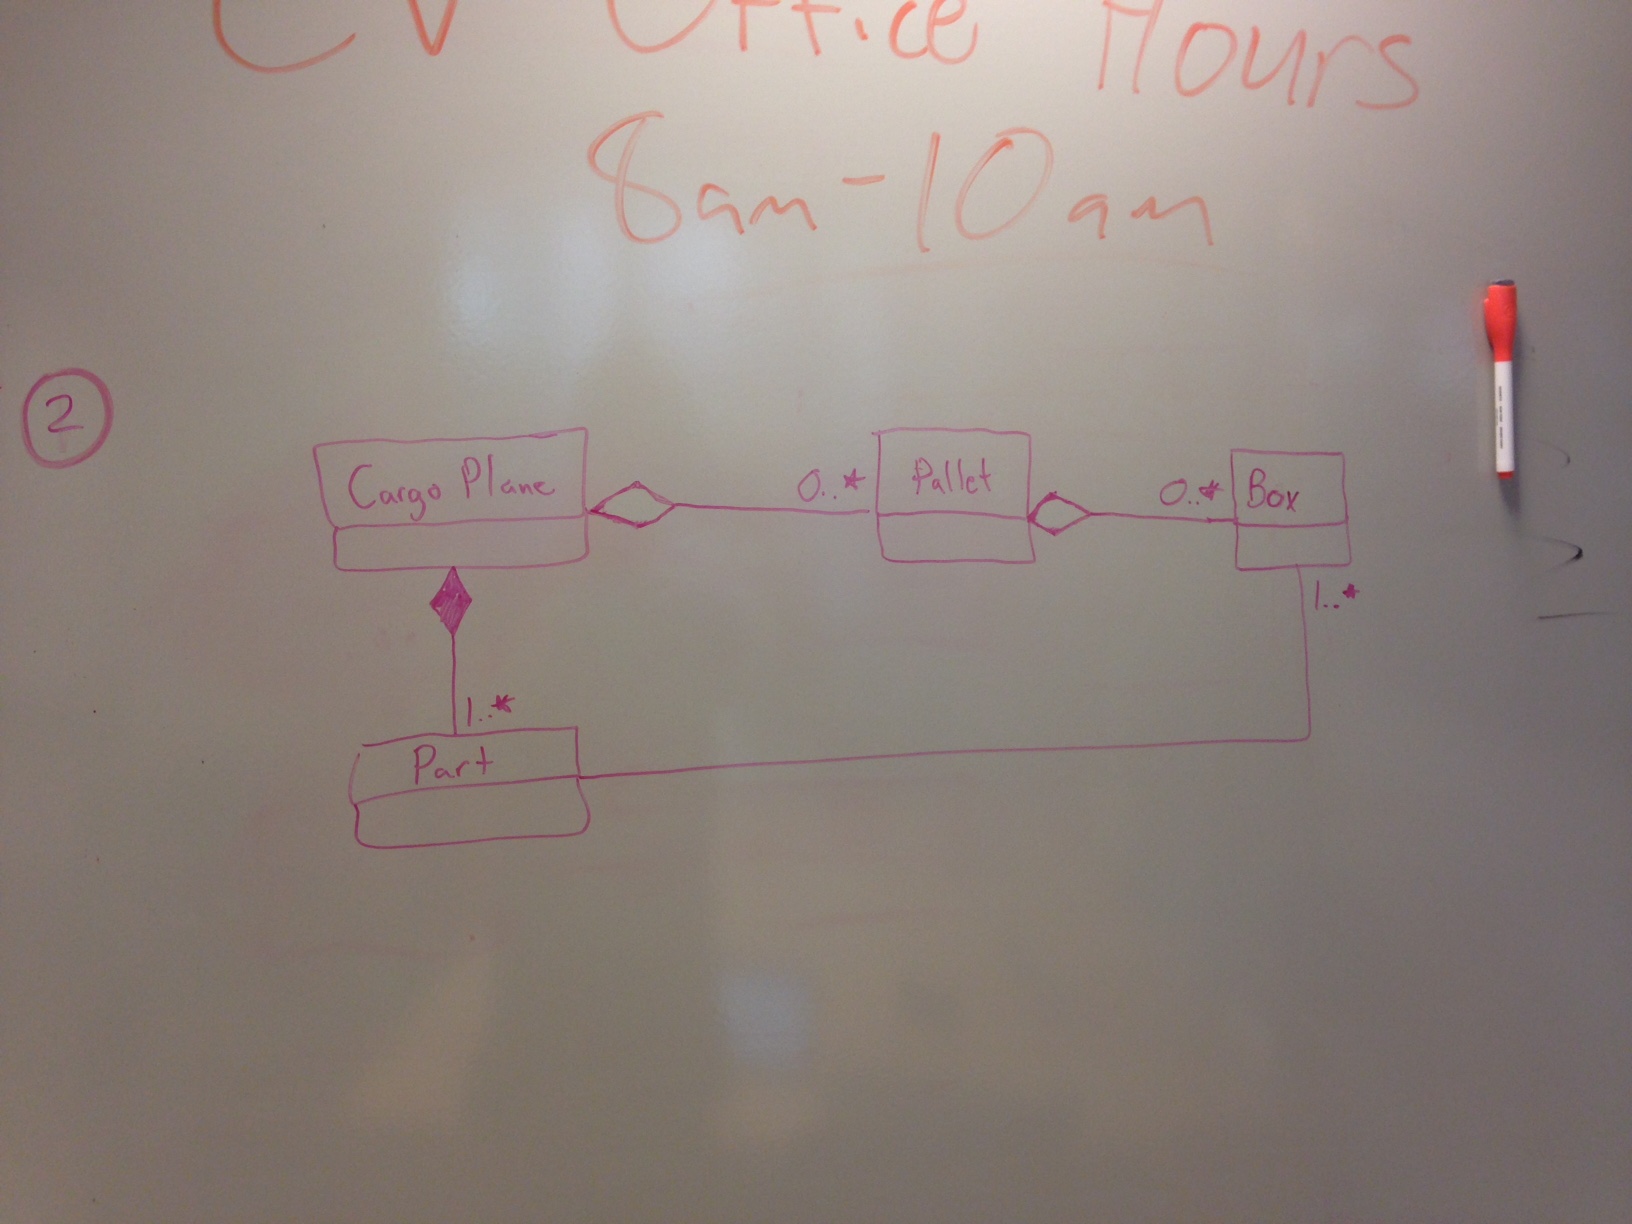 CV Office Hours
8am-10am
2
Cargo Plane
0..*
Pallet
0..*
Box
1..*
1..*
Part